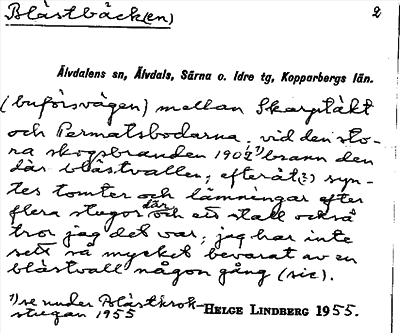 Blästbäck(en)
2
Älvdalens sn, Älvdals, Särna o. Idre tg, Kopparbergs län.
(buförsvägen) mellan Skarptäkt
och Permatsbodarna; vid den sto-
ra skogsbranden 1902 1) brann den
där blästvallen; efteråt(?) syn-
tes tomter och lämningar efter
flera stugor där och ett stall också
tror jag det var; jag har inte
sett så mycket bevarat av en
blästvall någon gång (sic).
1) se under Blästkrok-
stugan 1955
HELGE LINDBERG 1955.